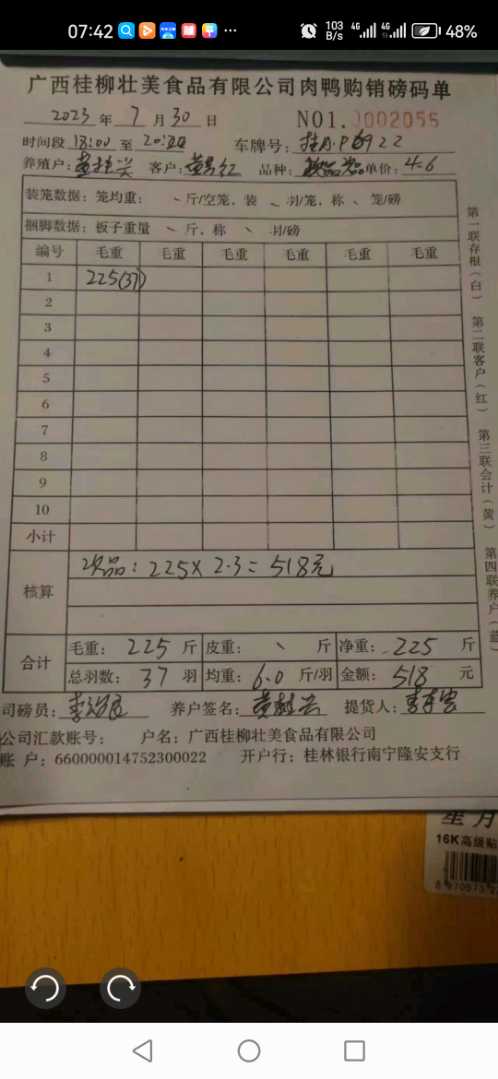 07:42 103 B/s 4G 4G 48%
广西桂柳壮美食品有限公司肉鸭购销磅码单
2023 年 7 月 30 日 NO1.0002055
时间段 18:00 至 20:20 车牌号:
养殖户: 客户: 品种: 单价: 4.6
装笼数据: 笼均重: 、 斤/空笼, 装 、 羽/笼, 称 、 笼/磅
捆脚数据: 板子重量 、 斤, 称 、 羽/磅
编号 毛重 毛重 毛重 毛重 毛重 毛重
1 225(37)
2
3
4
5
6
7
8
9
10
小计
核算 次品: 225×2.3=518元
合计 毛重: 225 斤 皮重: 、 斤 净重: 225 斤
总羽数: 37 羽 均重: 6.0 斤/羽 金额: 518 元
司磅员: 养户签名: 提货人:
公司汇款账号: 户名: 广西桂柳壮美食品有限公司
账 户: 660000014752300022 开户行: 桂林银行南宁隆安支行
第一联存根(白) 第二联客户(红) 第三联会计(黄) 第四联养户(蓝)
星月
16K高级贴